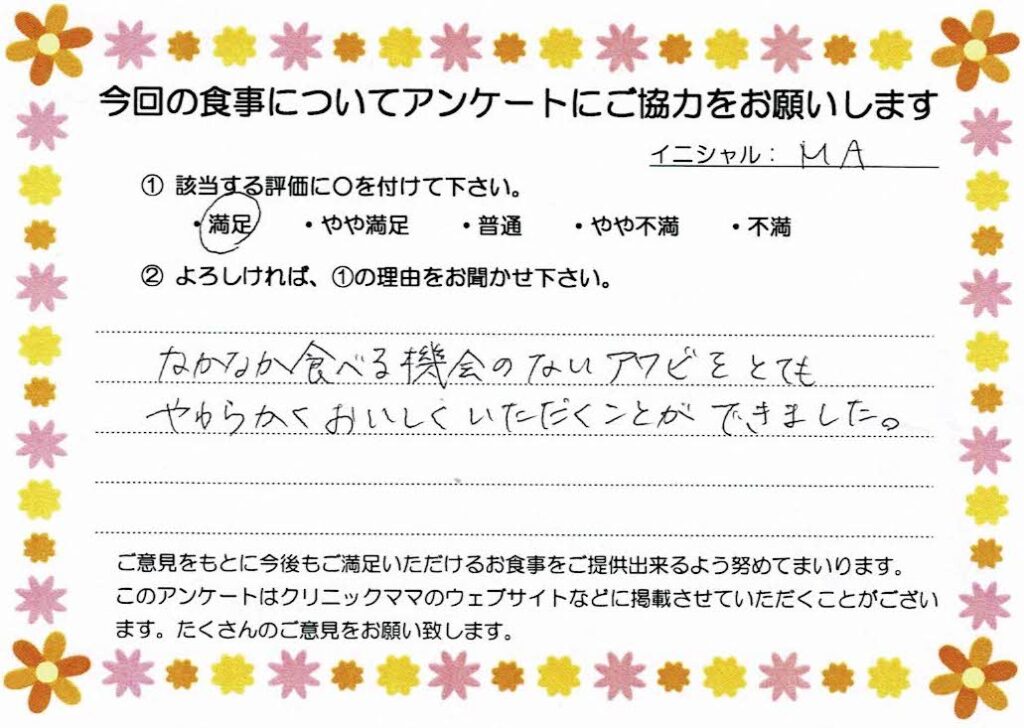 今回の食事についてアンケートにご協力をお願いします
イニシャル： MA
① 該当する評価に〇を付けて下さい。
・満足 ・やや満足 ・普通 ・やや不満 ・不満
② よろしければ、①の理由をお聞かせ下さい。
なかなか食べる機会のないアワビをとても
やわらかくおいしくいただくことができました。
ご意見をもとに今後もご満足いただけるお食事をご提供出来るよう努めてまいります。
このアンケートはクリニックママのウェブサイトなどに掲載させていただくことがござい
ます。たくさんのご意見をお願い致します。